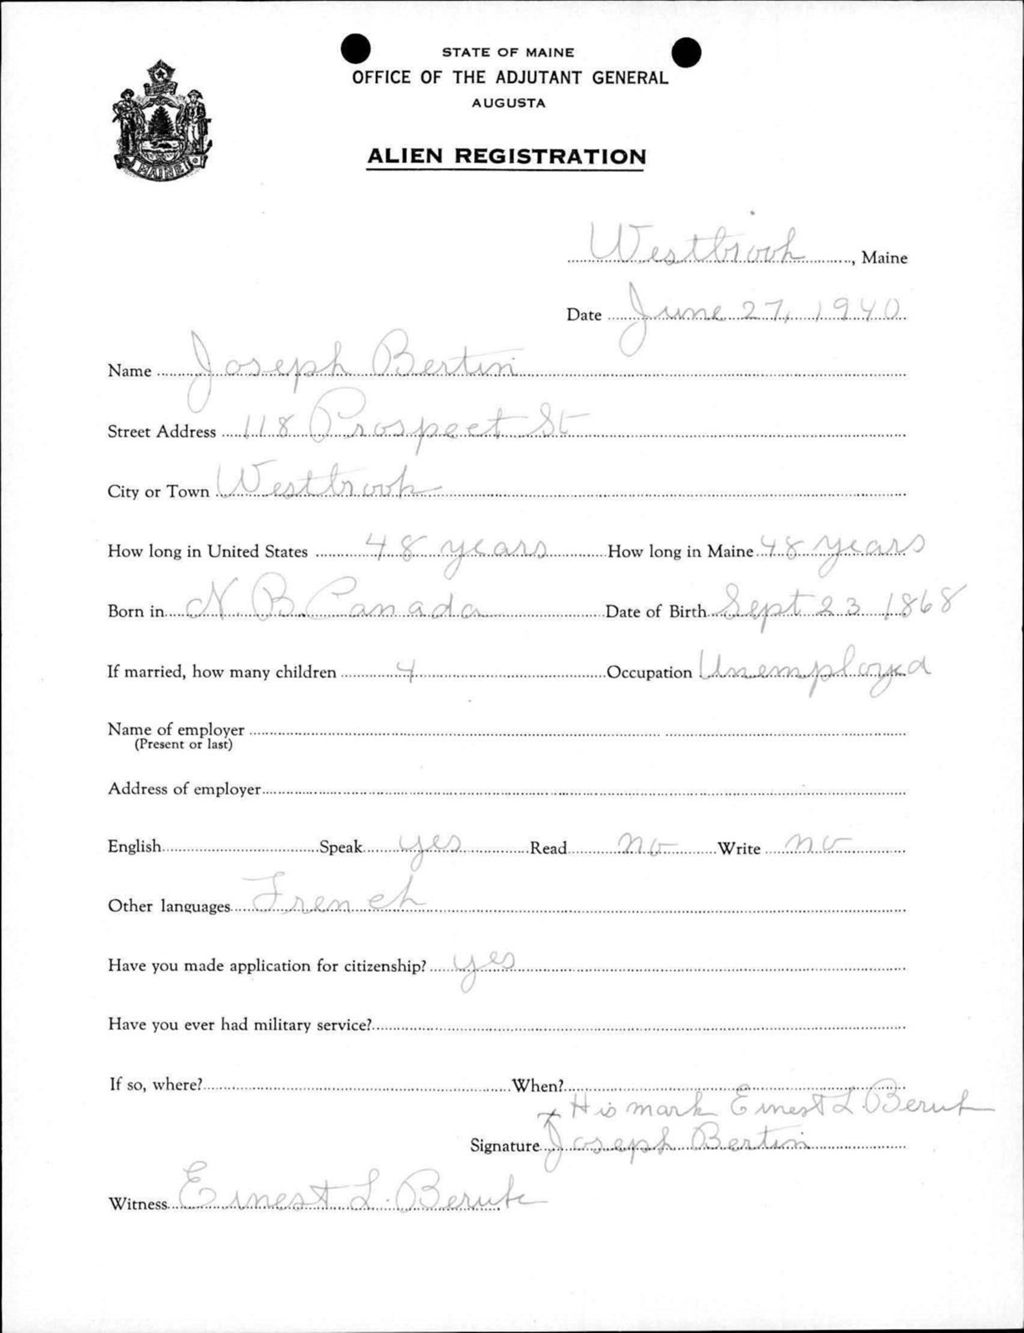 STATE OF MAINE
OFFICE OF THE ADJUTANT GENERAL
AUGUSTA
ALIEN REGISTRATION
MAINE
Westbrook, Maine
Date June 27, 1940
Name Joseph Bertin
Street Address 118 Prospect St
City or Town Westbrook
How long in United States 48 years How long in Maine 48 years
Born in N. B. Canada Date of Birth Sept 23 1868
If married, how many children 4 Occupation Unemployed
Name of employer
(Present or last)
Address of employer
English Speak yes Read no Write no
Other languages French
Have you made application for citizenship? yes
Have you ever had military service?
If so, where? When?
x His mark Ernest L.
Signature Joseph Bertin
Witness Ernest L.